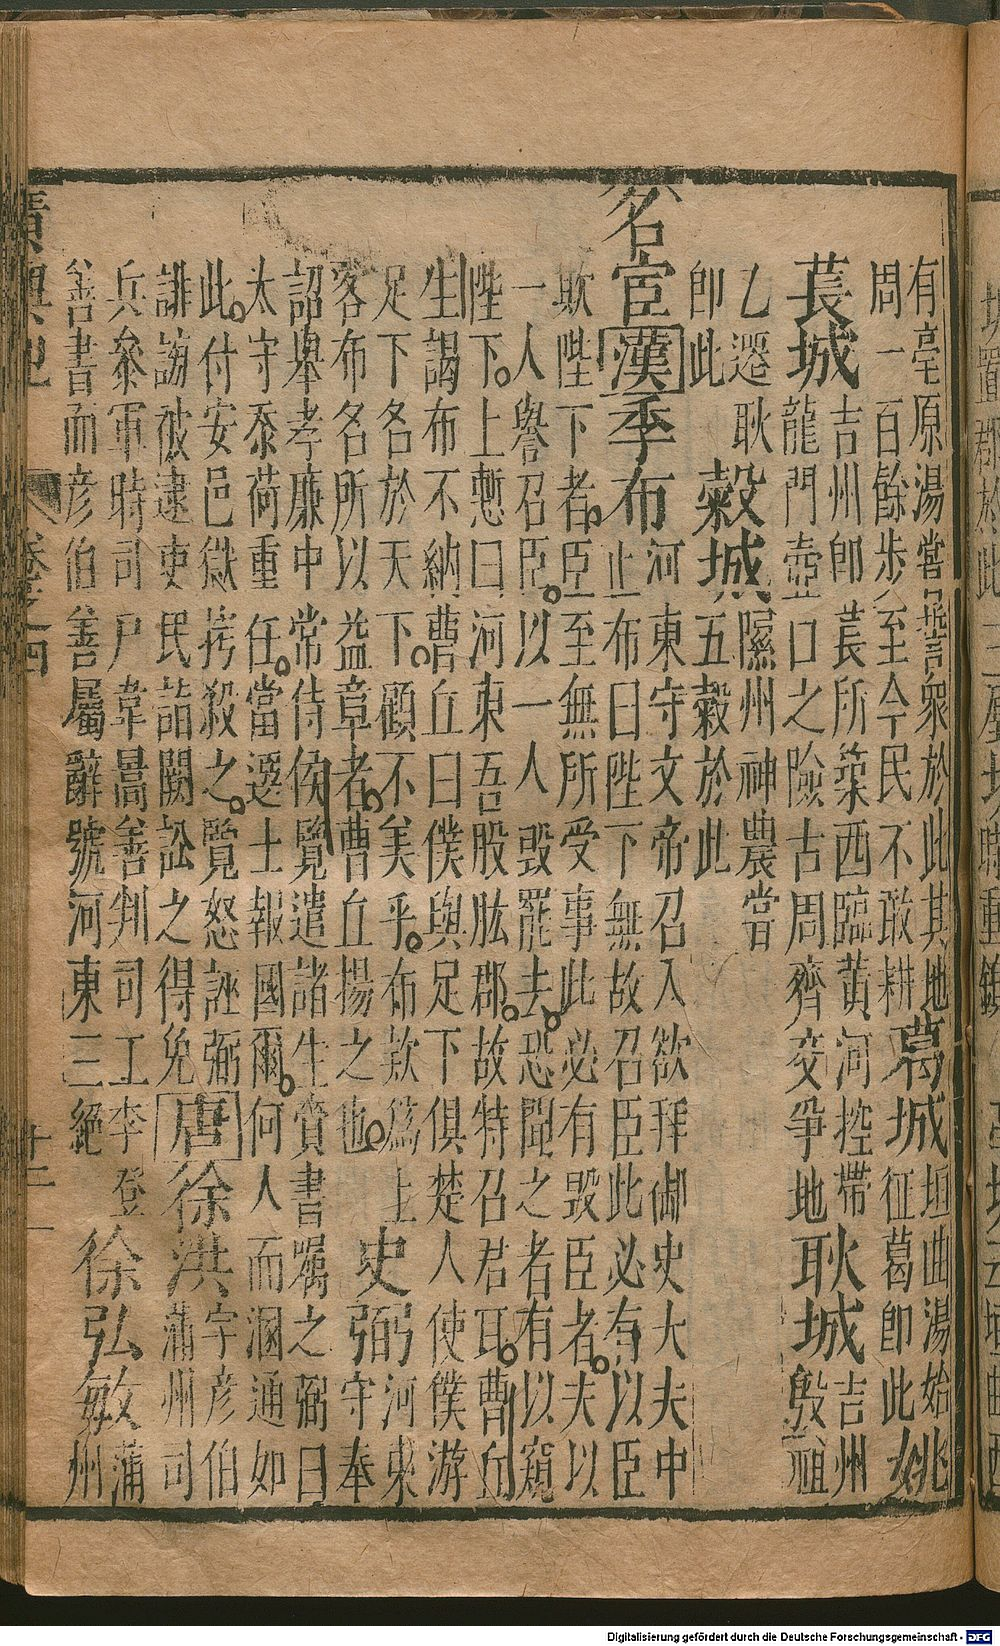 有亳原湯嘗誓衆於此其地
周一百餘步至今民不敢耕
葛城
垣曲湯始
征葛即此
姚
萇城
吉州即萇所築西臨黃河控帶
龍門壺口之險古周齊交爭地
耿城
吉州
殷祖
乙遷耿
即此
穀城
隰州神農嘗
五穀於此
名宦漢季布
河東守文帝召入欲拜御史大夫中
止布曰陛下無故召臣此必有以臣
欺陛下者臣至無所受事此必有毀臣者夫以
一人譽召臣以一人毀罷去恐聞之者有以窺
陛下上慙曰河東吾股肱郡故特召君耳曹丘
生謁布不納曹丘曰僕與足下俱楚人使僕游
足下名於天下顧不美乎布款爲上
客布名所以益章者曹丘揚之也
史弼
河東
守奉
詔舉孝廉中常侍侯覽遣諸生賷書囑之弼曰
太守忝荷重任當選士報國爾何人而涵通如
此付安邑獄拷殺之覽怒誣弼
誹謗被逮吏民詣闕訟之得免
唐徐洪
字彥伯
蒲州司
兵參軍時司戶韋暠善判司工李登
善書而彥伯善屬辭號河東三絕
徐弘敏
蒲
州
廣輿記
卷之四
十二
Digitalisierung gefördert durch die Deutsche Forschungsgemeinschaft - DFG